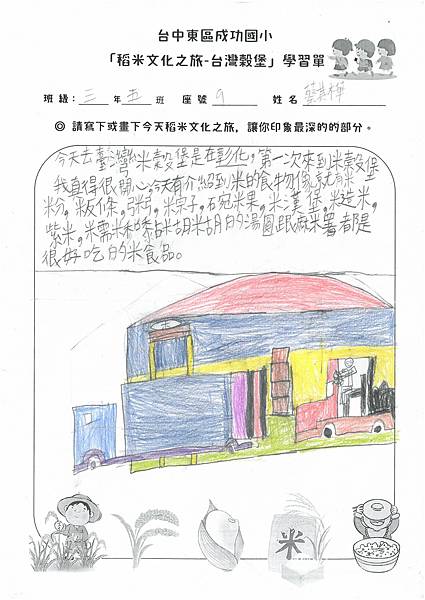 台中東區成功國小
「稻米文化之旅-台灣穀堡」學習單
班級:三年五班 座號9 姓名
◎ 請寫下或畫下今天稻米文化之旅,讓你印象最深的的部分。
今天去臺灣米穀堡是在彰化,第一次來到米穀堡
我真得很開心,今天有介紹到米的食物像就有米
粉,粄條,米宗子,碗米果,米漢堡,米造米,
紫米,米需米和米胡米胡的湯圓跟麻米署者都是
很好吃的米食品。
米